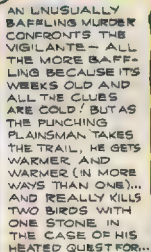 AN UNUSUALLY
BAFFLING MURDER
CONFRONTS THE
VIGILANTE — ALL
THE MORE BAFF-
LING BECAUSE IT'S
WEEKS OLD AND
ALL THE CLUES
ARE COLD! BUT AS
THE PUNCHING
PLAINSMAN TAKES
THE TRAIL, HE GETS
WARMER AND
WARMER (IN MORE
WAYS THAN ONE)...
AND REALLY KILLS
TWO BIRDS WITH
ONE STONE IN
THE CASE OF HIS
HEATED QUEST FOR...